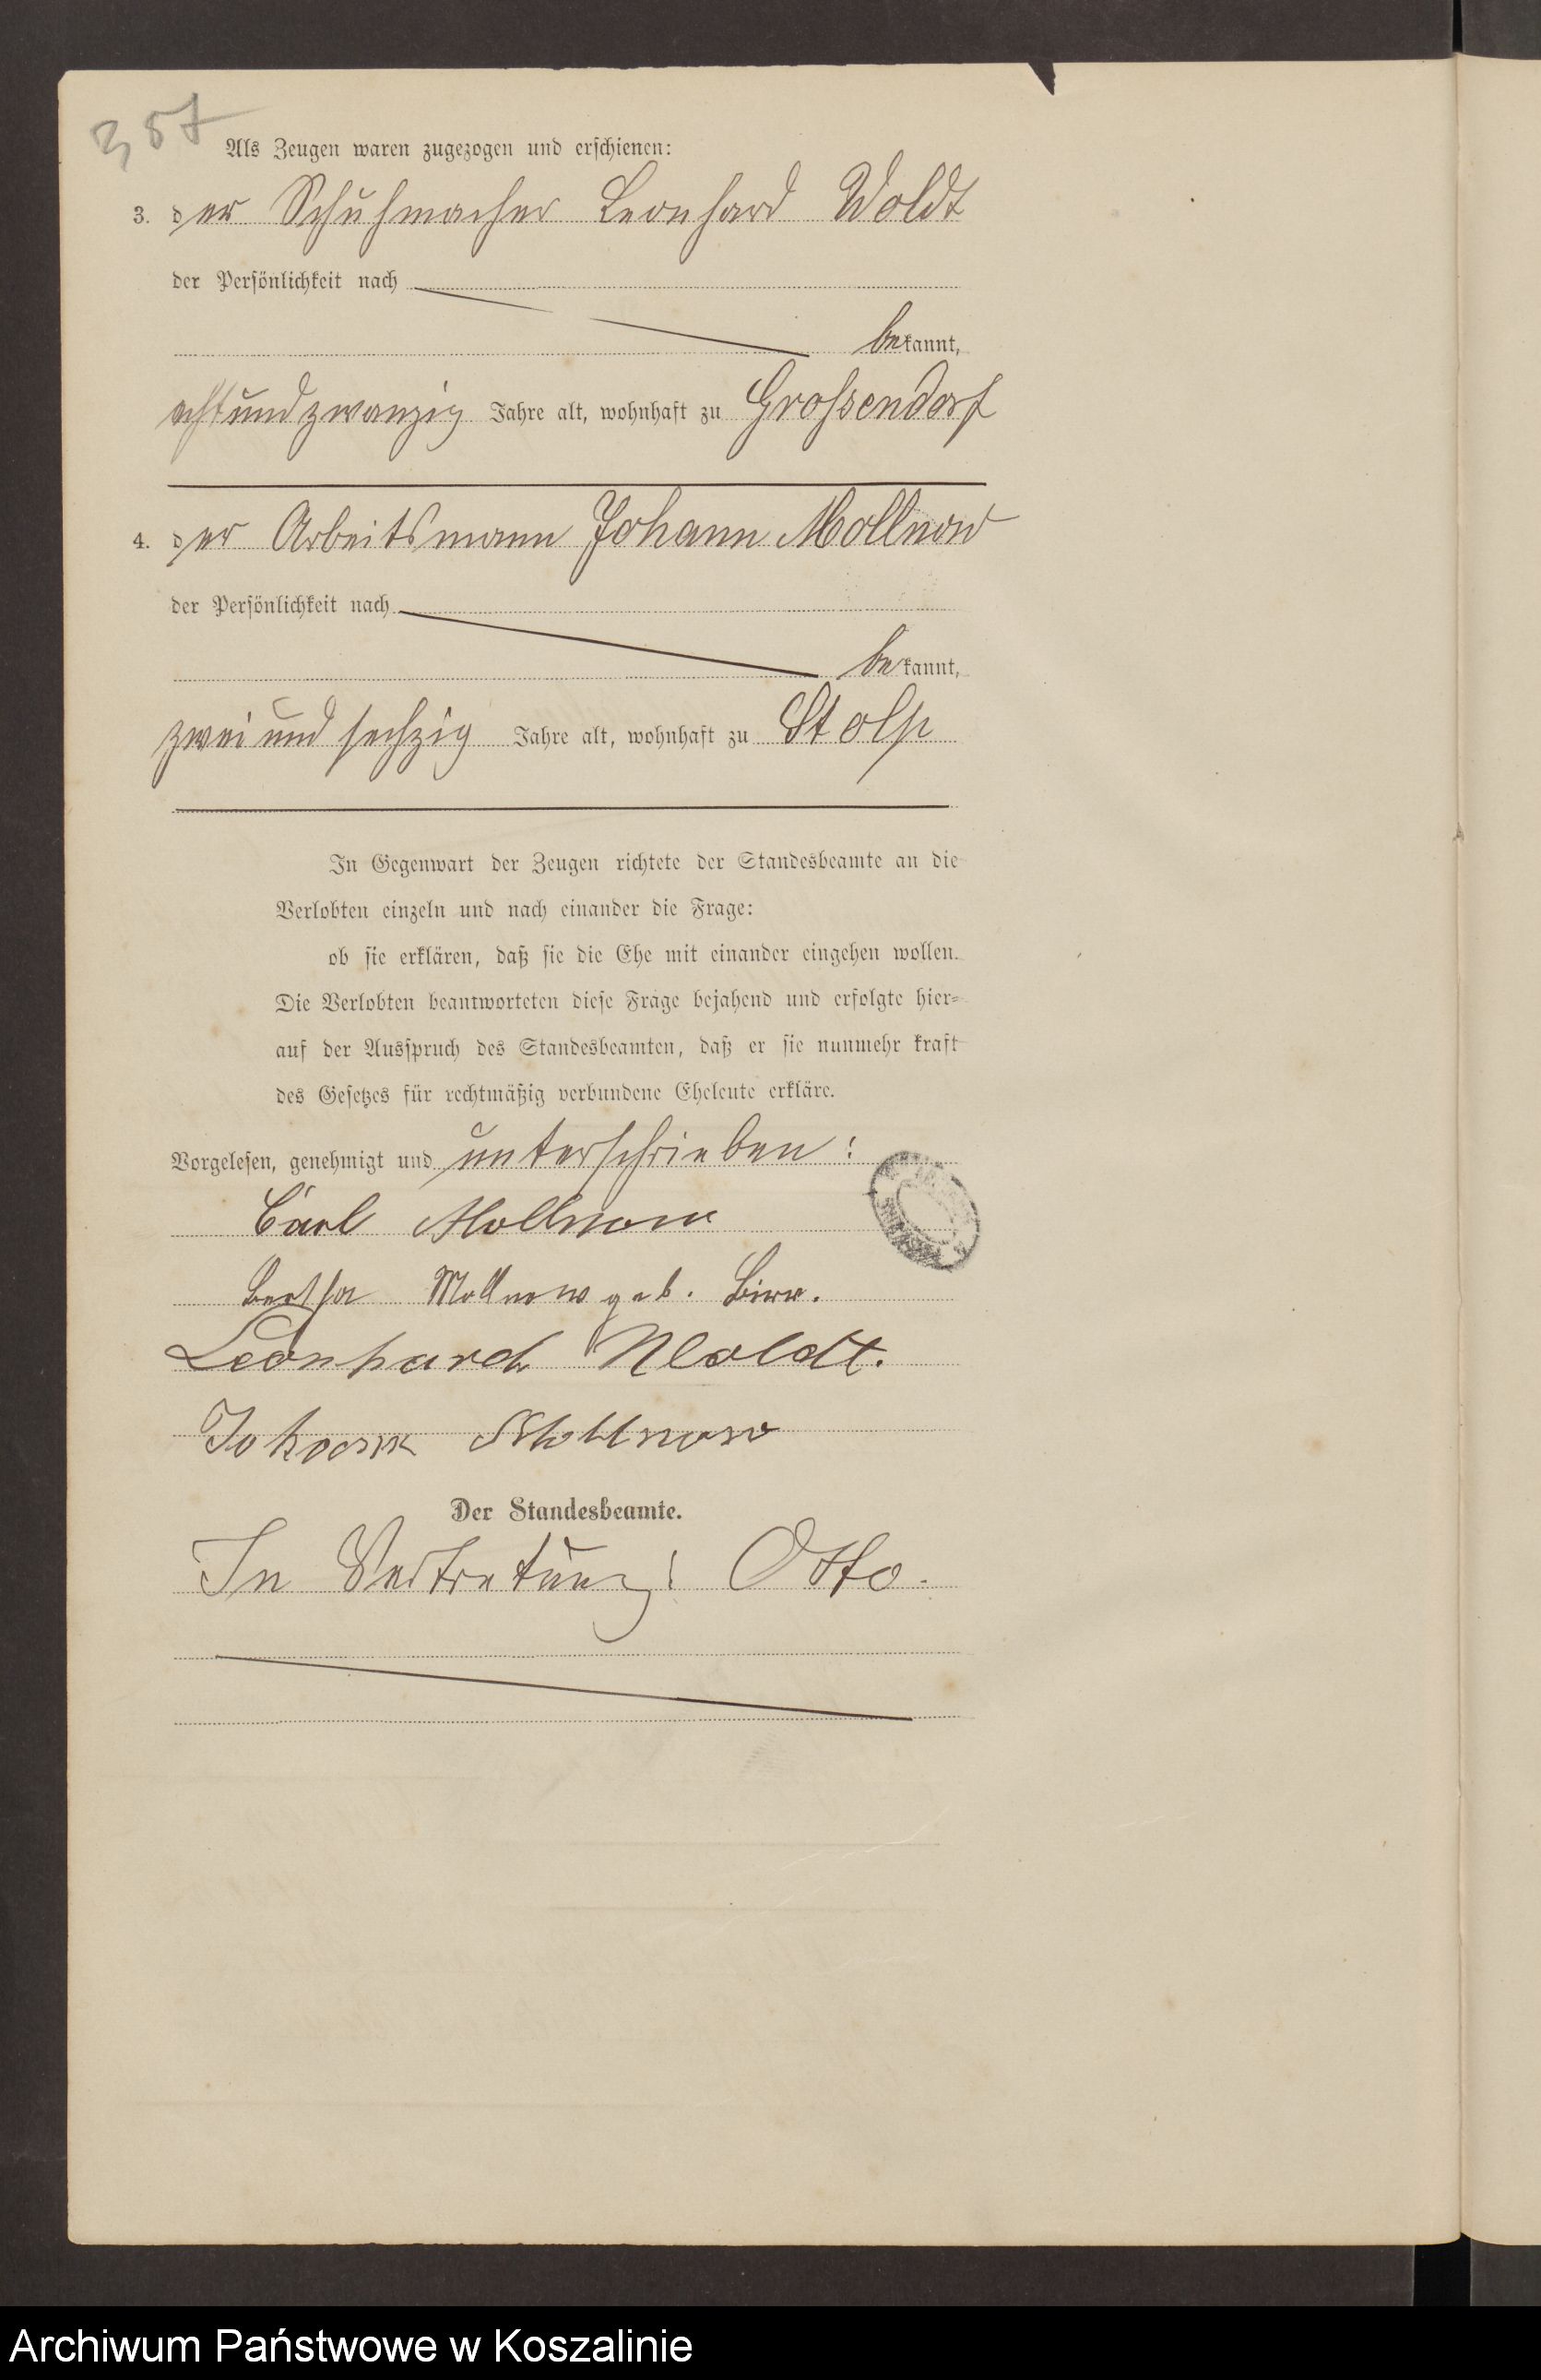 357
Als Zeugen waren zugezogen und erschienen:
3. der Schuhmacher Leonhard Woldt
der Persönlichkeit nach
bekannt,
achtundzwanzig Jahre alt, wohnhaft zu Grossendorf
4. der Arbeitsmann Johann Mollnow
der Persönlichkeit nach
bekannt,
zweiundsechzig Jahre alt, wohnhaft zu Stolp
In Gegenwart der Zeugen richtete der Standesbeamte an die
Verlobten einzeln und nach einander die Frage:
ob sie erklären, daß sie die Ehe mit einander eingehen wollen.
Die Verlobten beantworteten diese Frage bejahend und erfolgte hier-
auf der Ausspruch des Standesbeamten, daß er sie nunmehr kraft
des Gesetzes für rechtmäßig verbundene Eheleute erkläre.
Vorgelesen, genehmigt und unterschrieben:
Carl Mollnow
Bertha Mollnow geb. Birr.
Leonhard Woldt.
Johann Mollnow
Der Standesbeamte.
In Vertretung: Otto.
Archiwum Państwowe w Koszalinie